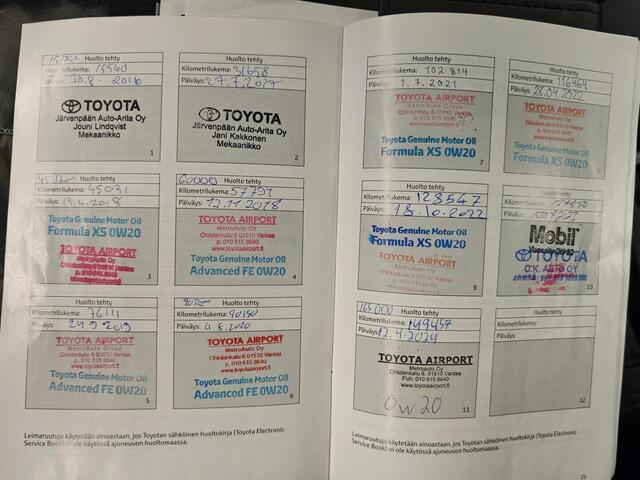 15 tkm Huolto tehty
Kilometrilukema: 15560
Päiväys: 30.8. 2016
TOYOTA
Järvenpään Auto-Arita Oy
Jouni Lindqvist
Mekaanikko
1
Huolto tehty
Kilometrilukema: 31658
Päiväys: 27.7.2017
TOYOTA
Järvenpään Auto-Arita Oy
Jani Kakkonen
Mekaanikko
2
45 Huolto tehty
Kilometrilukema: 45031
Päiväys: 13.4.2018
Toyota Genuine Motor Oil
Formula XS 0W20
TOYOTA AIRPORT
MetroAuto Oy
Ohtolankatu 6 01510 Vantaa
p. 010 615 8640
www.toyotaairport.fi
3
60000 Huolto tehty
Kilometrilukema: 57797
Päiväys: 12.11.2018
TOYOTA AIRPORT
MetroAuto Oy
Ohtolankatu 6 01510 Vantaa
p. 010 615 8640
www.toyotaairport.fi
Toyota Genuine Motor Oil
Advanced FE 0W20
4
Huolto tehty
Kilometrilukema: 76111
Päiväys: 24.9.2019
TOYOTA AIRPORT
MetroAuto Group
Ohtolankatu 6 01510 Vantaa
p. 010 615 8640
www.toyotaairport.fi
Toyota Genuine Motor Oil
Advanced FE 0W20
5
90 Huolto tehty
Kilometrilukema: 90150
Päiväys: 4.8.2020
TOYOTA AIRPORT
MetroAuto Oy
Ohtolankatu 6 01510 Vantaa
p. 010 615 8640
www.toyotaairport.fi
Toyota Genuine Motor Oil
Advanced FE 0W20
6
Leimaruutuja käytetään ainoastaan, jos Toyotan sähköinen huoltokirja (Toyota Electronic
Service Book) ei ole käytössä ajoneuvon huoltomaassa.
Huolto tehty
Kilometrilukema: 102 814
Päiväys: 1.7.2021
TOYOTA AIRPORT
MetroAuto Group
Ohtolankatu 6 01510 Vantaa
p. 010 615 8640
www.toyotaairport.fi
Toyota Genuine Motor Oil
Formula XS 0W20
7
Huolto tehty
Kilometrilukema: 116464
Päiväys: 28.04.2022
TOYOTA AIRPORT
MetroAuto Oy
Ohtolankatu 6 01510 Vantaa
p. 010 615 8640
www.toyotaairport.fi
Toyota Genuine Motor Oil
Formula XS 0W20
8
Huolto tehty
Kilometrilukema: 128547
Päiväys: 18.10.2022
Toyota Genuine Motor Oil
Formula XS 0W20
TOYOTA AIRPORT
MetroAuto Oy
Ohtolankatu 6 01510 Vantaa
p. 010 615 8640
www.toyotaairport.fi
9
Huolto tehty
Kilometrilukema:
Päiväys:
Mobil
0W-20
TOYOTA
O.K. AUTO OY
10
165 000 Huolto tehty
Kilometrilukema: 149457
Päiväys: 12.4.2024
TOYOTA AIRPORT
Metroauto Oy
Ohtolankatu 6, 01510 Vantaa
Puh: 010 615 8640
www.toyotaairport.fi
0W20
11
Huolto tehty
Kilometrilukema:
Päiväys:
12
Leimaruutuja käytetään ainoastaan, jos Toyotan sähköinen huoltokirja (Toyota Electronic
Service Book) ei ole käytössä ajoneuvon huoltomaassa.
25